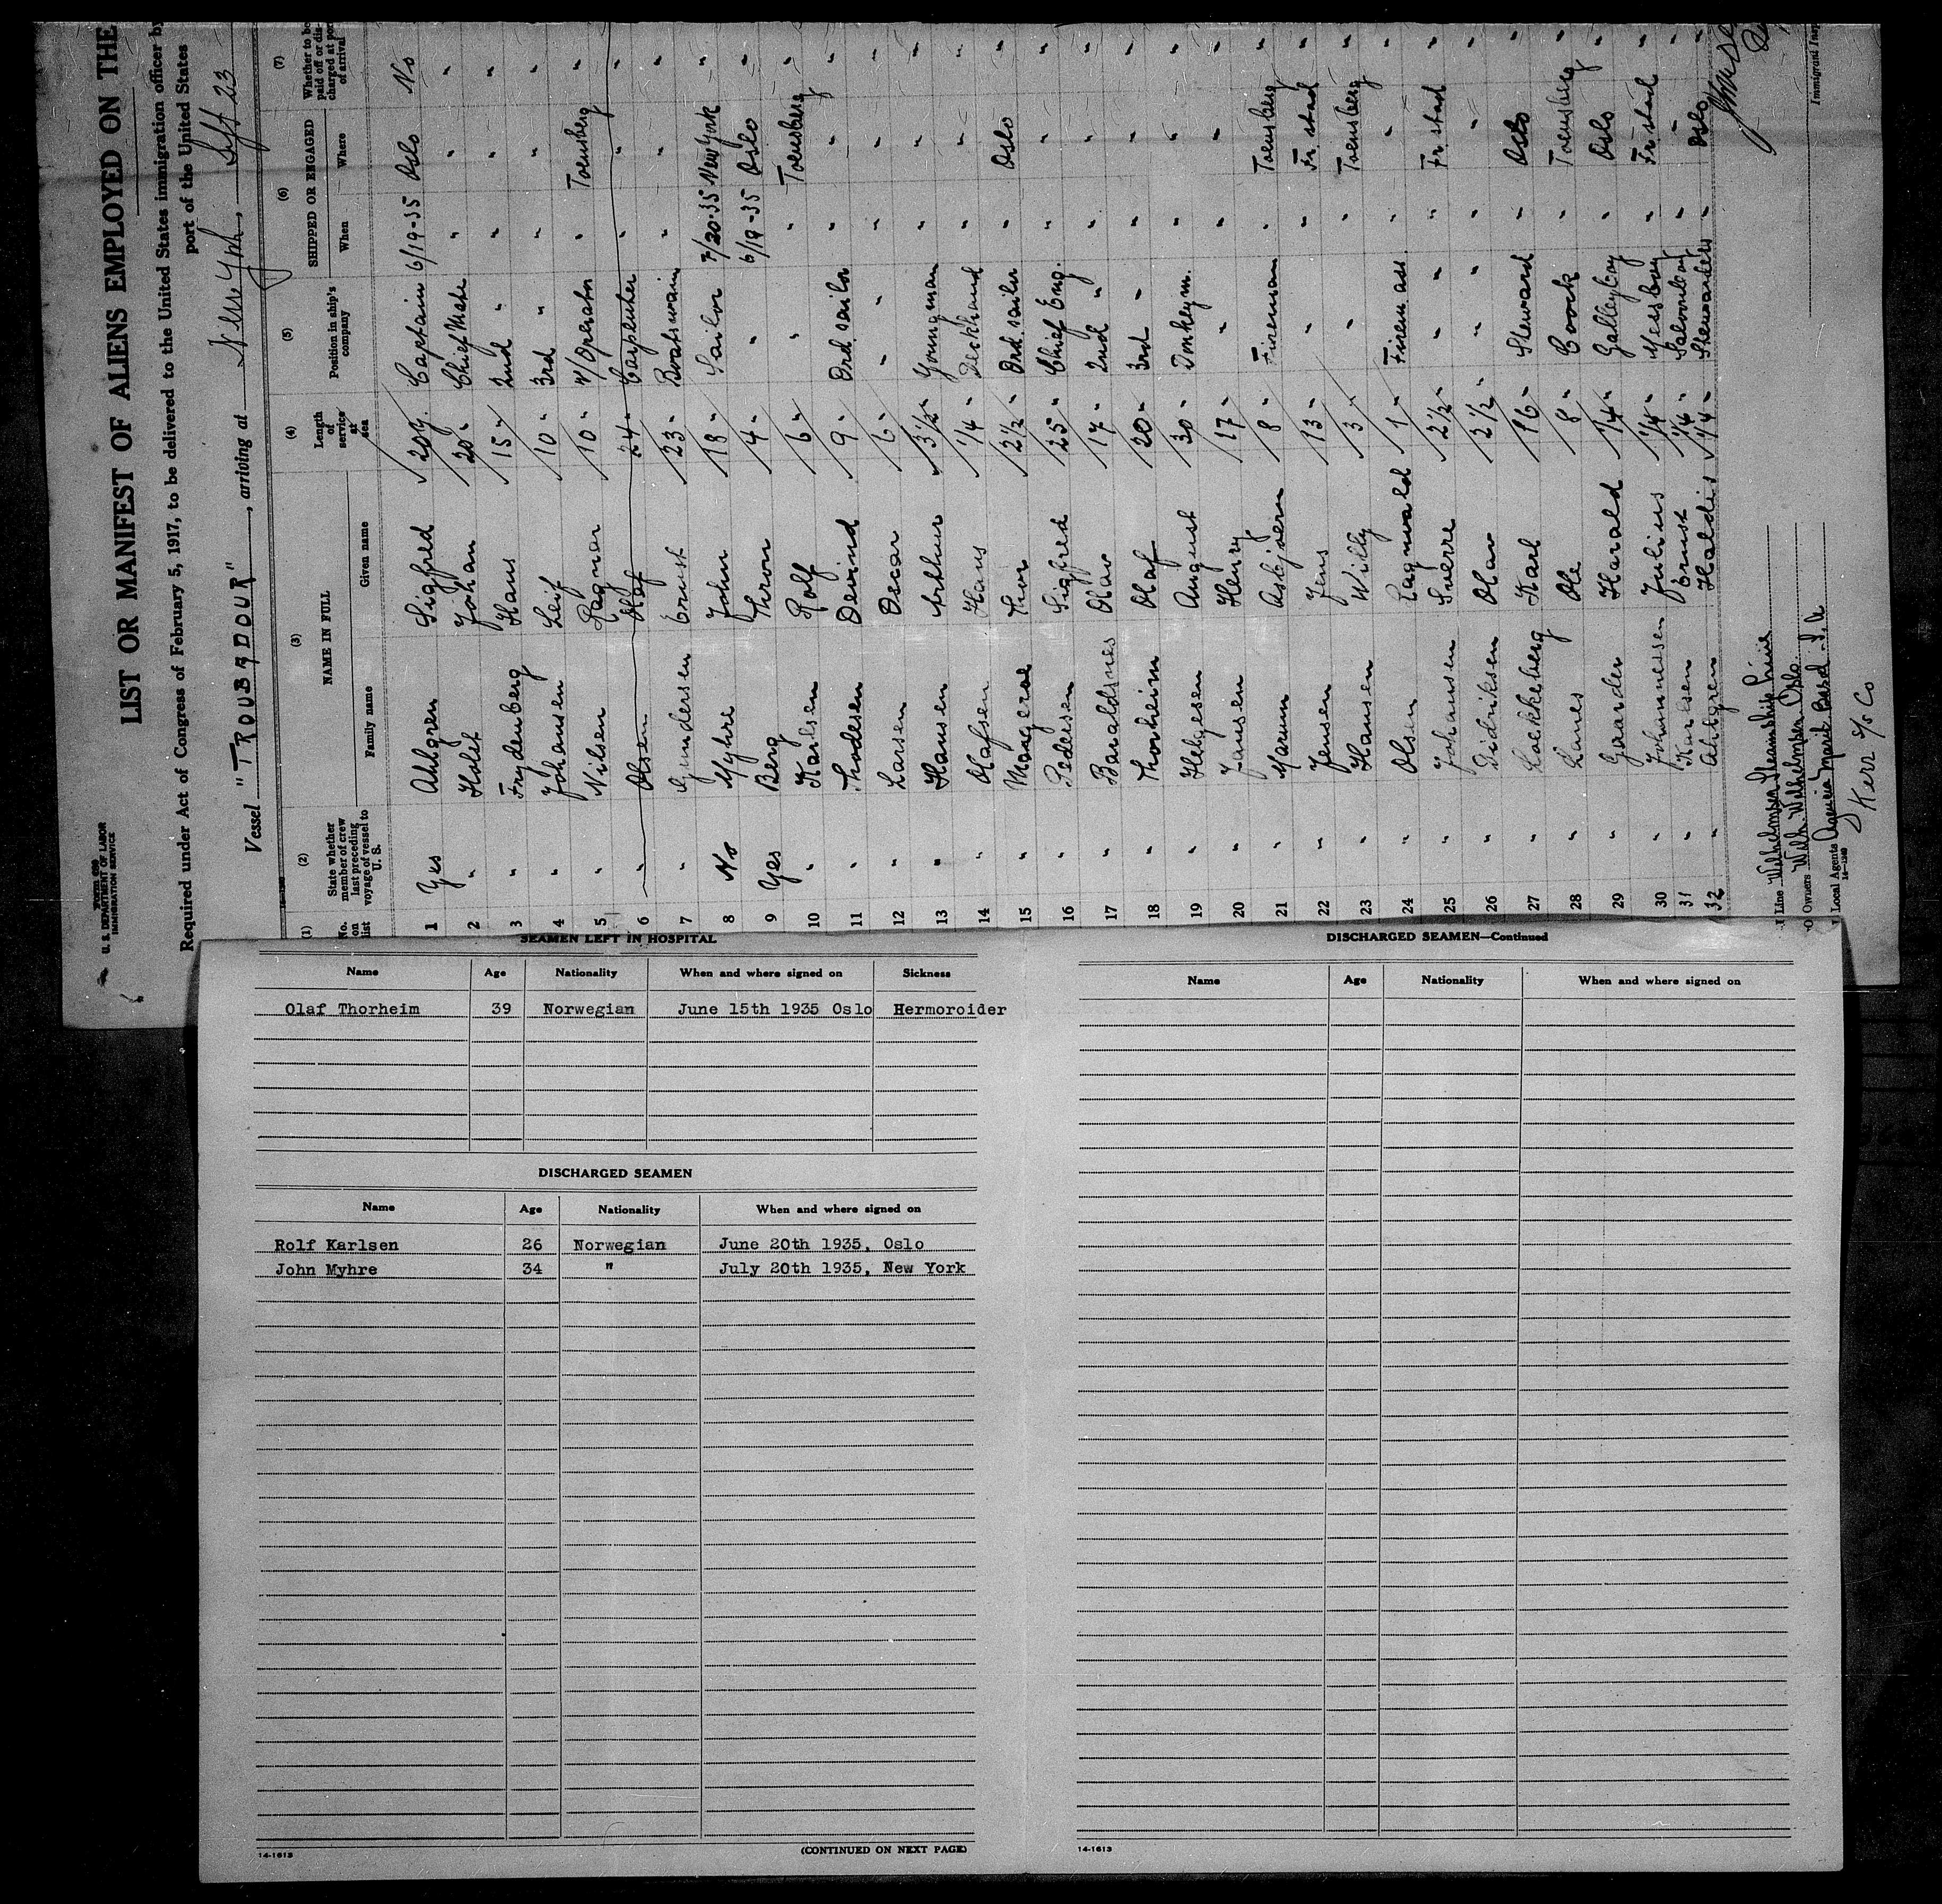 Form 689
U. S. DEPARTMENT OF LABOR
IMMIGRATION SERVICE
LIST OR MANIFEST OF ALIENS EMPLOYED ON THE
Required under Act of Congress of February 5, 1917, to be delivered to the United States immigration officer by
port of the United States
Vessel "TROUBADOUR", arriving at , Sept 23
(1) No. on list (2) State whether member of crew last preceding voyage of vessel to U. S. (3) NAME IN FULL Family name Given name (4) Length of service at sea (5) Position in ship's company (6) SHIPPED OR ENGAGED When Where (7) Whether to be paid off or discharged at port of arrival
1 Yes Ahlgren Sigfred 20 y. Captain 6/19-35 Oslo No
2 " Holst Johan 20 " Chief Mate " " "
3 " Frydenberg Hans 15 " 2nd " " " "
4 " Johansen Leif 10 " 3rd " " " "
5 " Nilsen Ragnar 10 " W/Operator " Toensberg "
6 " Olsen Olaf 24 " Carpenter " " "
7 " Gundersen Ernst 23 " Boatswain " " "
8 No Myhre John 18 " Sailor 7/20-35 New York "
9 Yes Berg Thron 4 " " 6/19-35 Oslo "
10 " Karlsen Rolf 6 " " " Toensberg "
11 " Thodesen Deivind 9 " Ord. sailor " " "
12 " Larsen Oscar 6 " " " " "
13 " Hansen Arthur 3 1/2 " Youngman " " "
14 " Olafsen Hans 1/4 " Deckhand " " "
15 " Mangerød Thor 2 1/2 " Ord. sailor " Oslo "
16 " Pedersen Sigfred 25 " Chief Eng. " " "
17 " Baraldsnes Olav 17 " 2nd " " " "
18 " Thorheim Olaf 20 " 3rd " " " "
19 " Helgesen August 30 " Donkeym. " " "
20 " Jansen Henry 17 " " " " "
21 " Mamn Asbjoern 8 " Fireman " Toensberg "
22 " Jensen Jens 13 " " " Fr. stad "
23 " Hansen Willy 3 " " " Toensberg "
24 " Olsen Ragnvald 1 " Firem ass. " " "
25 " Johansen Sverre 2 1/2 " " " Fr. stad "
26 " Didriksen Olav 2 1/2 " " " " "
27 " Lokkeberg Karl 16 " Steward " Oslo "
28 " Lanes Ole 8 " Coock " Toensberg "
29 " Gaarder Harald 1/4 " Galleyboy " Oslo "
30 " Johannessen Julius 1/4 " Messboy " Fr. stad "
31 " Karlsen Ernst 1/4 " Saloonboy " " "
32 " Ahlgren Haldis 1/4 " Stewardess " Oslo "
Line Wilhelmsen Steamship Line
Owners Wilh. Wilhelmsen Oslo
Local Agents
14-1240
Kerr S/S Co
Immigrant Insp
SEAMEN LEFT IN HOSPITAL
Name Age Nationality When and where signed on Sickness
Olaf Thorheim 39 Norwegian June 15th 1935 Oslo Hermoroider
DISCHARGED SEAMEN
Name Age Nationality When and where signed on
Rolf Karlsen 26 Norwegian June 20th 1935, Oslo
John Myhre 34 " July 20th 1935, New York
14-1613
(CONTINUED ON NEXT PAGE)
DISCHARGED SEAMEN—Continued
Name Age Nationality When and where signed on
14-1613